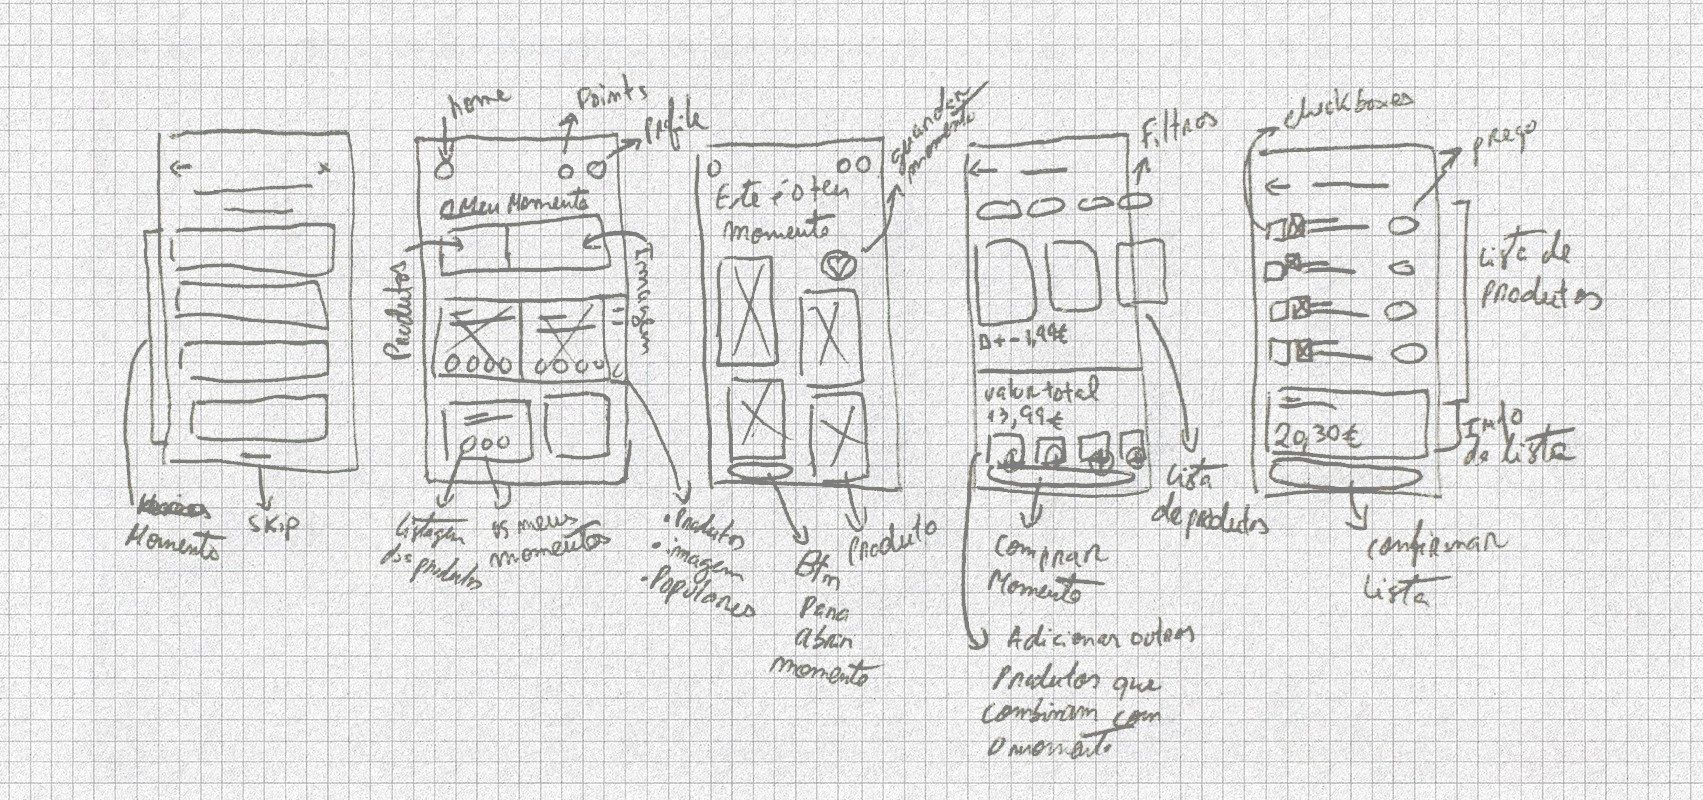 x
Momento
Skip
home
Points
Profile
O Meu Momento
Produtos
Imagem
Listagem
dos produtos
os meus
momentos
• Produtos
• imagem
• Populares
Este é o teu
momento
guardar
momento
Btn
Para
abrir
momento
Produto
Filtros
1,99€
valor total
13,99€
Lista
de produtos
Comprar
Momento
Adicionar outros
Produtos que
combinam com
o momento
checkboxes
preço
Lista de
produtos
20,30€
Info
da lista
Confirmar
Lista